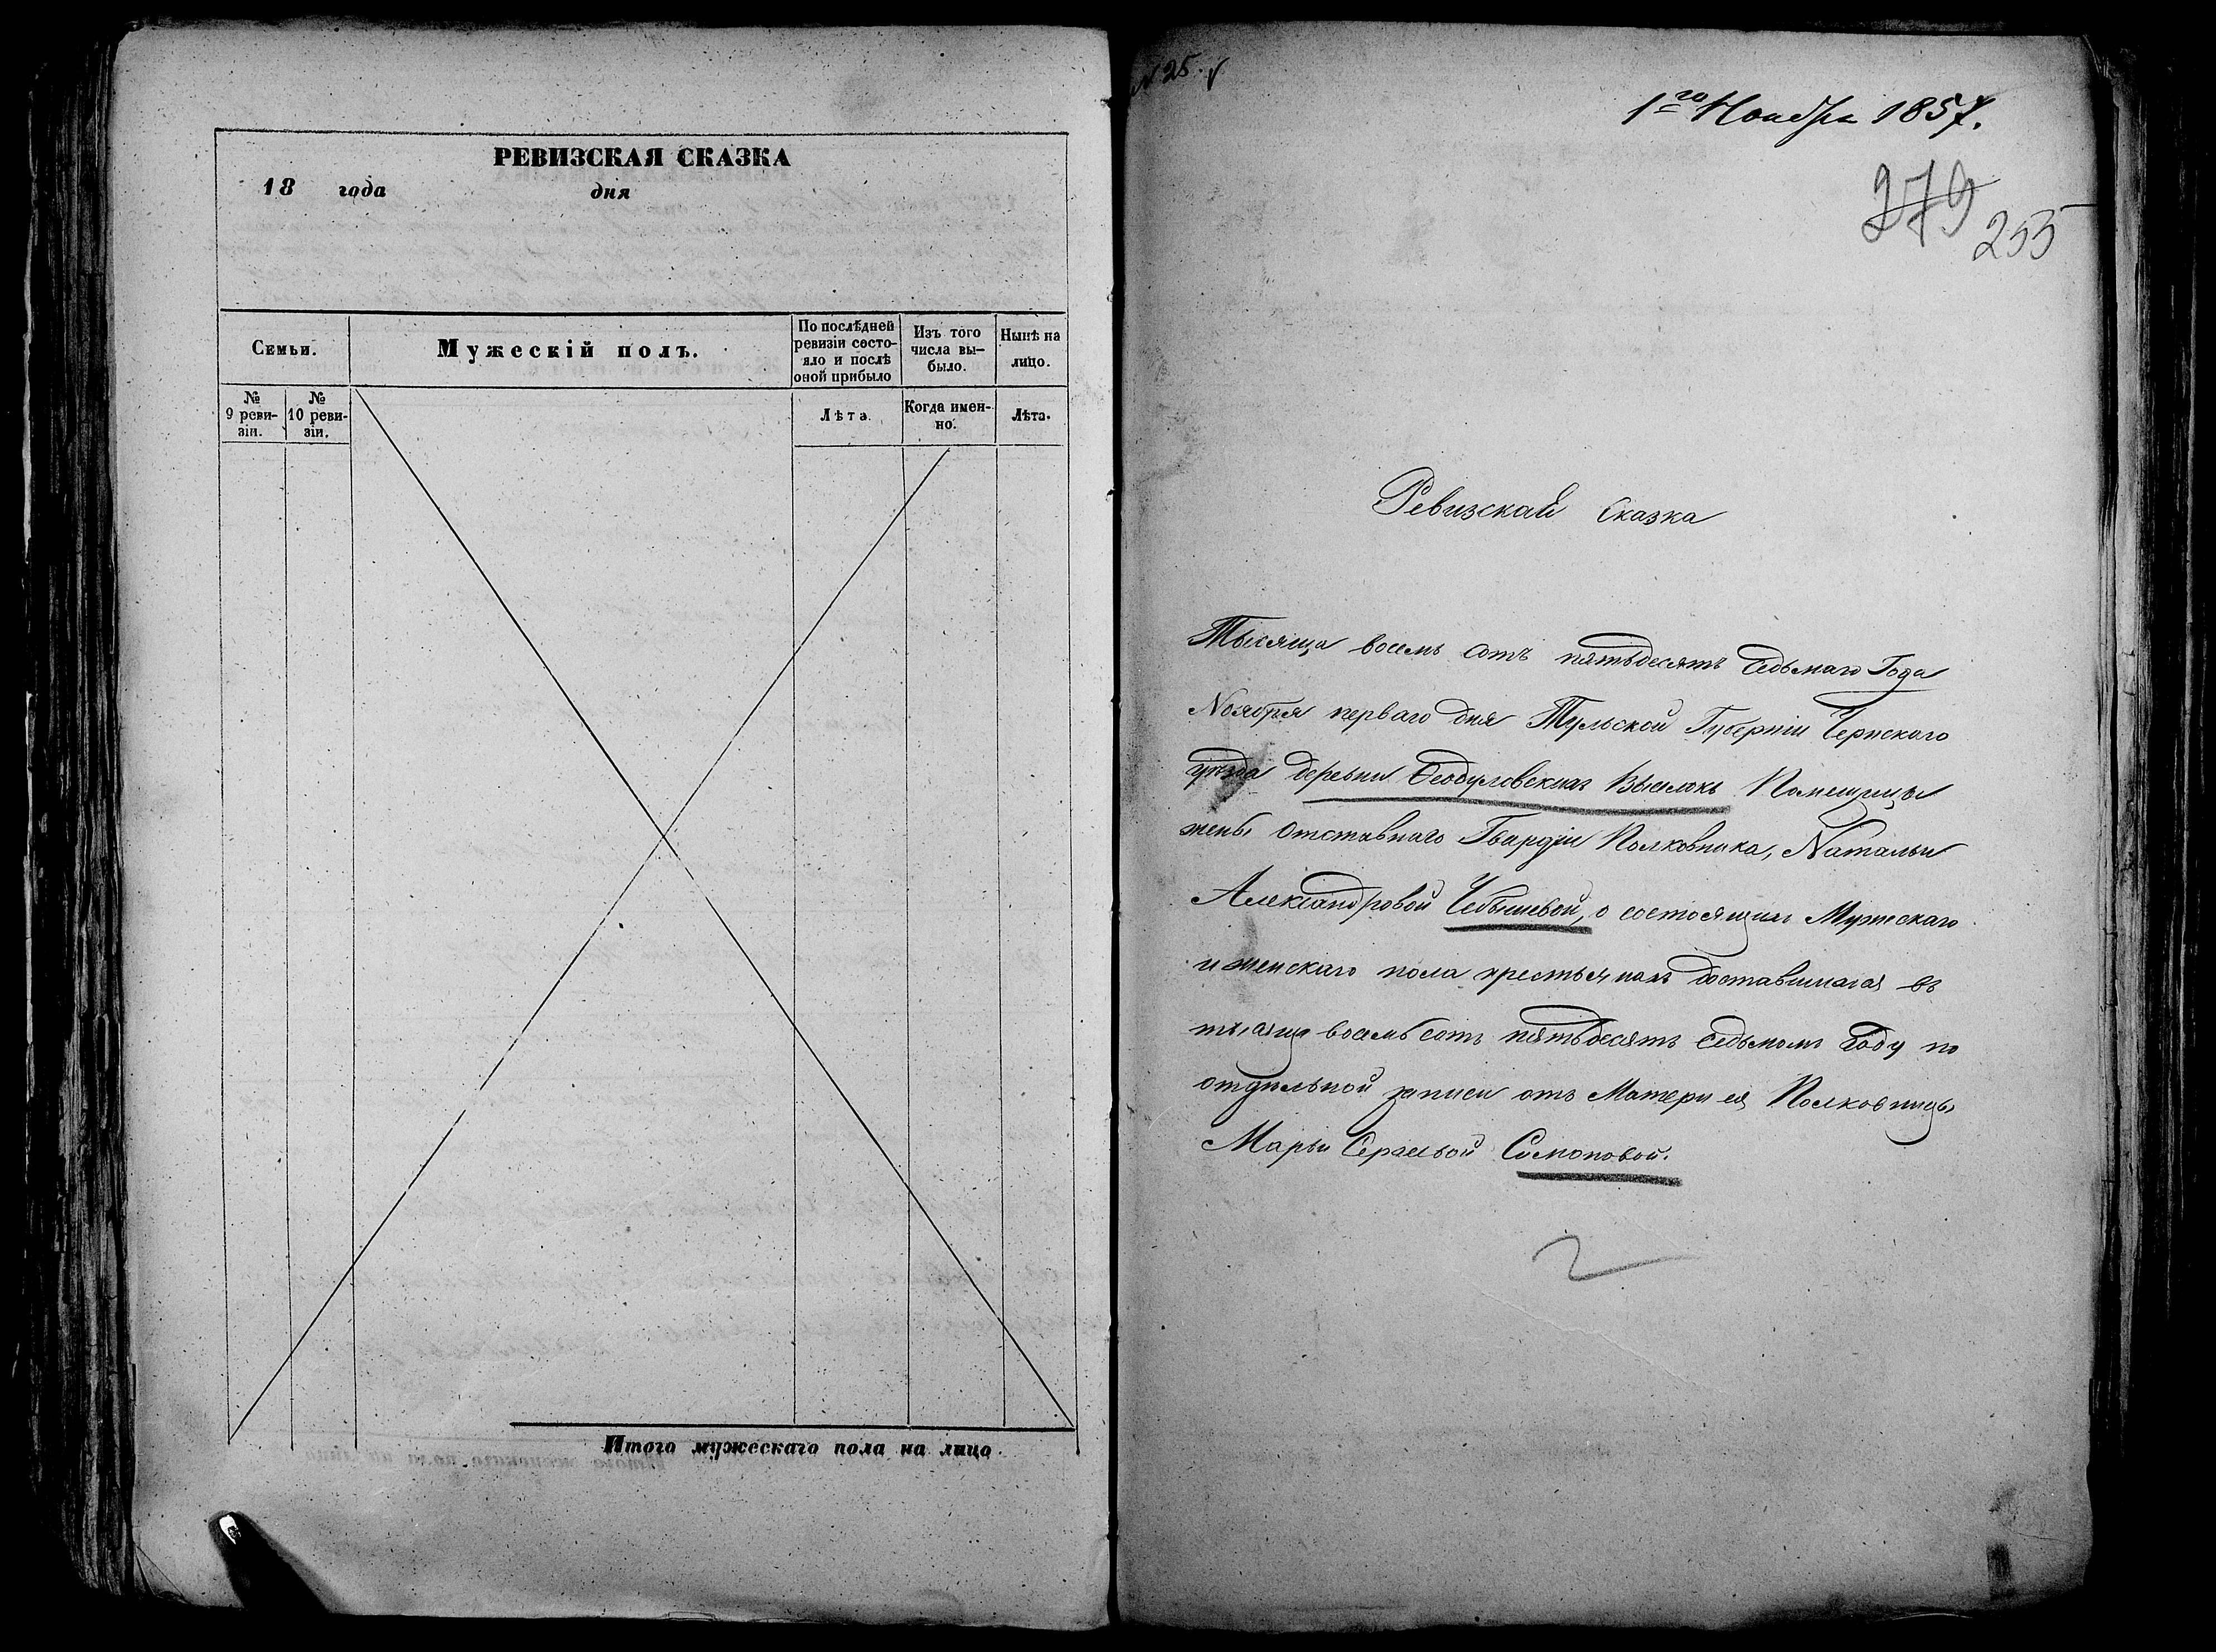 РЕВИЗСКАЯ СКАЗКА
18 года дня
Семьи.
Мужескій полъ.
По послѣдней ревизіи состо-
яло и послѣ
оной прибыло
Изъ того
числа вы-
было.
Нынѣ на
лицо.
№
9 реви-
зіи.
№
10 реви-
зіи.
Лѣта.
Когда имен-
но.
Лѣта.
Итого мужескаго пола на лицо.
N 25.
1го Ноября 1857.
279
255
Ревизская Сказка
Тысяща восемь сотъ пятьдесятъ седьмаго Года
Ноября перваго дня Тульской Губерніи Чернского
уѣзда деревни Ѳеодуловскихъ Выселокъ Помещицы
жены Отставнаго Гвардіи Полковника, Натальи
Александровой Чебышевой, о состоящихъ Мужескаго
и женскаго пола крестьянахъ доставшихся въ
тысяща восемь сотъ пятьдесятъ седьмомъ Году по
отдѣльной записи отъ Матери ея Полковницы
Марьи Сергѣевой Симоновой.
2